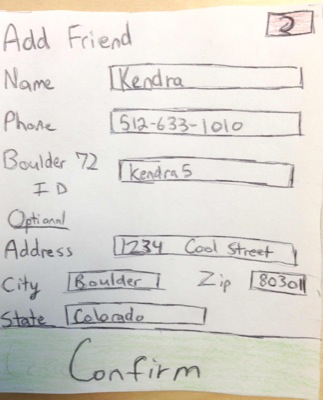 Add Friend 2
Name Kendra
Phone 512-633-1010
Boulder 72 ID Kendra5
Optional
Address 1234 Cool Street
City Boulder Zip 80301
State Colorado
Confirm